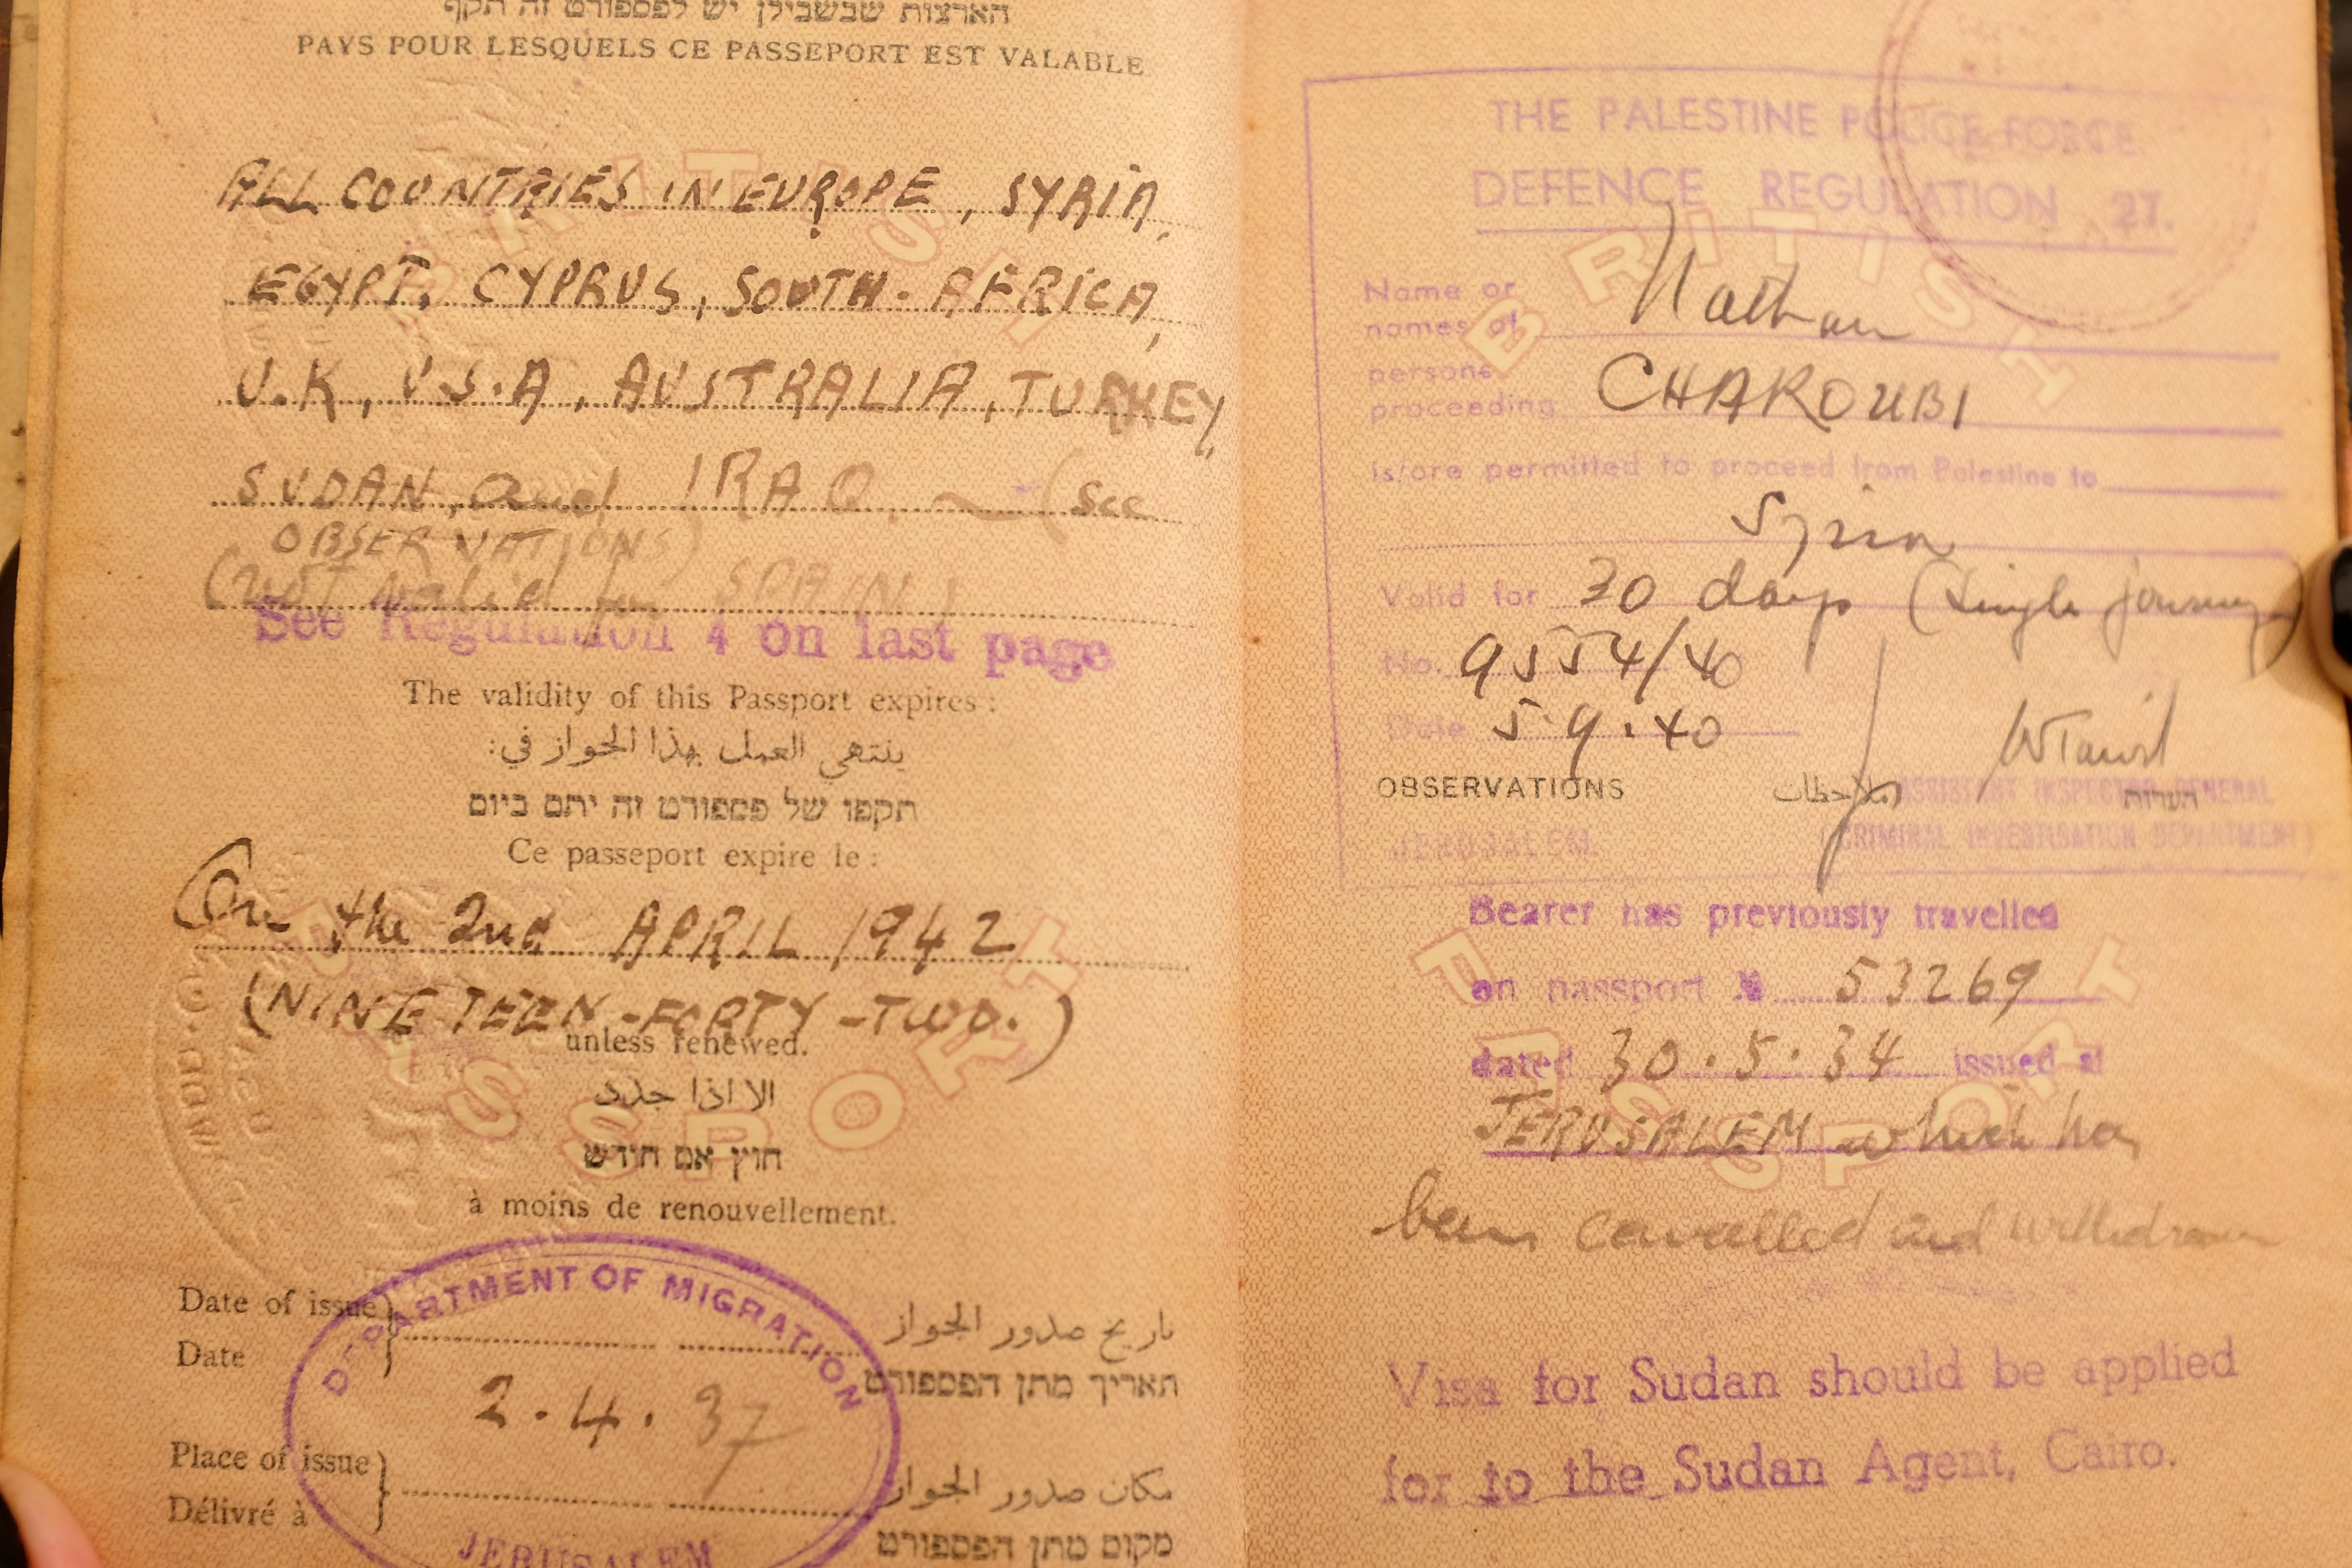 הארצות שבשבילן יש לפספורט זה תקף
PAYS POUR LESQUELS CE PASSEPORT EST VALABLE
ALL COUNTRIES IN EUROPE, SYRIA,
EGYPT, CYPRUS, SOUTH-AFRICA,
U.K, U.S.A, AUSTRALIA, TURKEY,
SUDAN, and IRAQ. (See
OBSERVATIONS)
(not valid for SPAIN)
See Regulation 4 on last page
The validity of this Passport expires:
ينتهي العمل بهذا الجواز في:
תקפו של פספורט זה יתם ביום
Ce passeport expire le:
On the 2nd APRIL 1942
(NINETEEN-FORTY-TWO.)
unless renewed.
الا اذا جدد
חוץ אם חודש
à moins de renouvellement.
DEPARTMENT OF MIGRATION
Date of issue
تاريخ صدور الجواز
Date
תאריך מתן הפספורט
2.4.37
Place of issue
مكان صدور الجواز
Délivré à
מקום מתן הפספורט
JERUSALEM
BRITISH
PASSPORT
THE PALESTINE POLICE FORCE
DEFENCE REGULATION 27.
Name or
names of
persons
proceeding
Nathan
CHAROUBI
is/are permitted to proceed from Palestine to
Syria
Valid for 30 days (Single journey)
No. 9554/40
Date 5.9.40
OBSERVATIONS ملاحظات הערות
ASSISTANT INSPECTOR GENERAL
JERUSALEM. (CRIMINAL INVESTIGATION DEPARTMENT)
Bearer has previously travelled
on passport № 53269
dated 30.5.34 issued at
JERUSALEM which has
been cancelled and withdrawn
Visa for Sudan should be applied
for to the Sudan Agent, Cairo.
BRITISH
PASSPORT